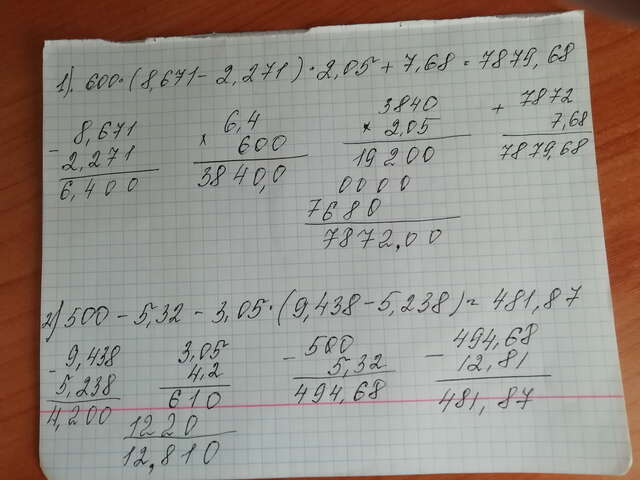 1). 600·(8,671-2,271)·2,05+7,68=7879,68
- 8,671
2,271
6,400
× 6,4
600
3840,0
3840
× 2,05
19200
0000
7680
7872,00
+ 7872
7,68
7879,68
2) 500-5,32-3,05·(9,438-5,238)=481,87
- 9,438
5,238
4,200
3,05
4,2
610
1220
12,810
- 500
5,32
494,68
- 494,68
12,81
481,87